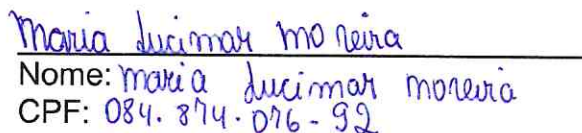 Maria Lucimar Moreira
Nome: Maria Lucimar Moreira
CPF: 084.874.076-92